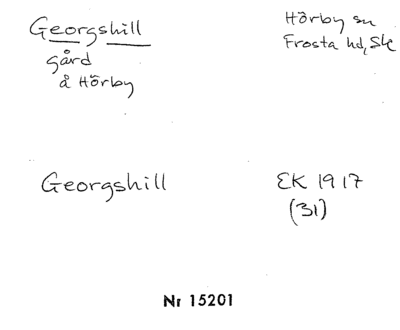 Georgshill
gård
å Hörby
Hörby sn
Frosta hd, Sk
Georgshill
EK 1917
(31)
Nr 15201